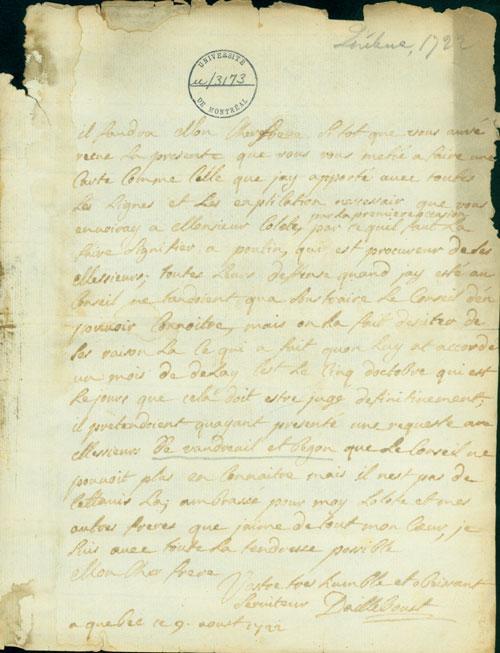 1722
UNIVERSITÉ
u/3173
DE MONTRÉAL
il faudra Mon Cher frere si tot que vous auré
recue La presente que vous vous metié a faire une
Carte Comme Celle que jay apporté avec toutes
Les Lignes et Les explilation necessair que vous
par la premiere occasion
envoiray a Monsieur par ce quil faut La
faire signifier a poulin, qui est procureur de Ses
Messieurs; toutes Leurs defense quand jay esté au
Conseil ne tandoient qua soustraire Le Conseil den
pouvoir Connoitre, mais on La fait desister de
ses raison La Ce qui a fait quon Luy at accordé
un mois de deLay Cest Le Cinq doctobre qui est
Le jours que cela doit estre jugé definitivement;
il pretendoient quayant presenté une requeste a
Messieurs De vaudreuil et Begon que Le Conseil ne
pouvoit plus en Connaitre mais il nest pas de
La; ambrasse pour moy Lolote et mes
autres freres que jaime de tout mon Cœur, je
suis avec toute La tendresse possible
Mon Cher frere
Vostre tres humble et obeissant
serviteur Dailleboust
a quebec ce 9 aoust 1722